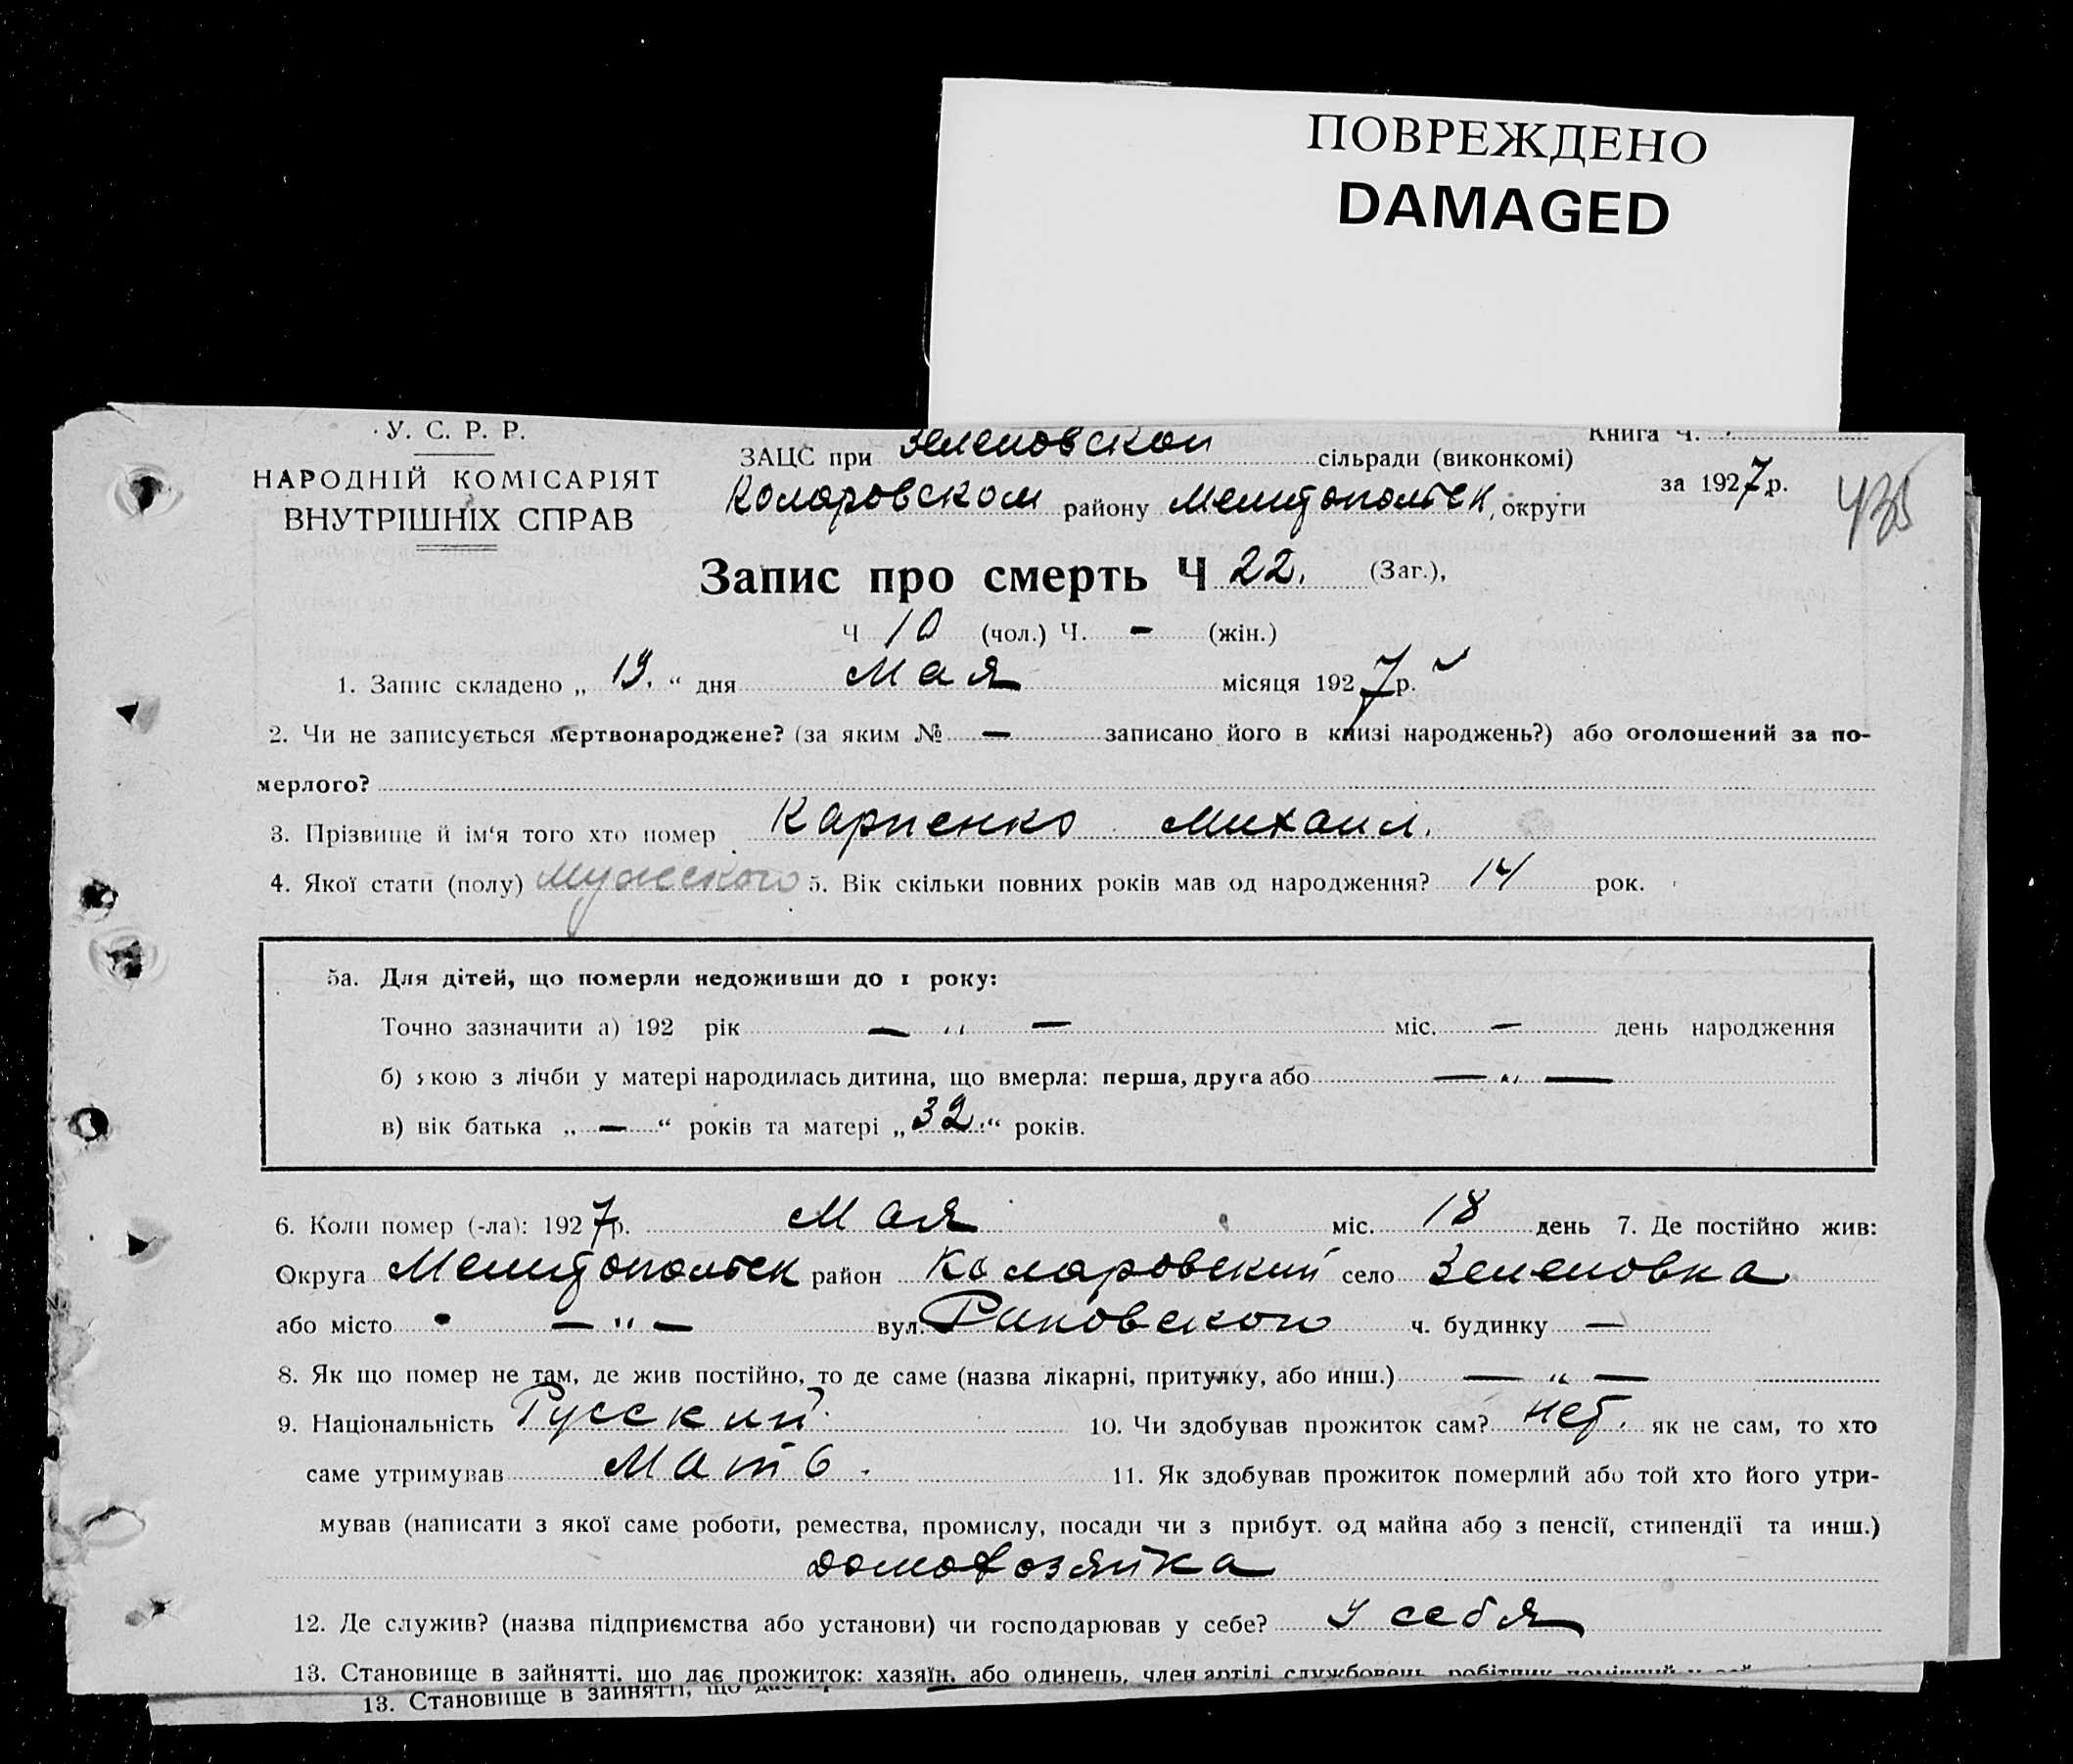 ПОВРЕЖДЕНО
DAMAGED
У. С. Р. Р.
НАРОДНІЙ КОМІСАРІЯТ
ВНУТРІШНІХ СПРАВ
Книга Ч.
ЗАЦС при Зеленовской сільради (виконкомі)
Коларовском району Мелитопольск. округи
за 1927 р.
Запис про смерть Ч 22. (Заг.),
Ч 10 (чол.) Ч. — (жін.)
1. Запис складено „ 19. “ дня Мая місяця 1927 р.
2. Чи не записується мертвонароджене? (за яким № — записано його в книзі народжень?) або оголошений за по-
мерлого?
3. Прізвище й ім'я того хто помер Карпенко Михаил.
4. Якої стати (полу) мужеского 5. Вік скільки повних років мав од народження? 14 рок.
5а. Для дітей, що померли недоживши до 1 року:
Точно зазначити а) 192 рік — „ — міс. — день народження
б) якою з лічби у матері народилась дитина, що вмерла: перша, друга або — „ —
в) вік батька „ — “ років та матері „ 32. “ років.
6. Коли помер (-ла): 1927 р. Мая міс. 18 день 7. Де постійно жив:
Округа Мелитопольск район Коларовский село Зеленовка
або місто — „ — вул. ч. будинку —
8. Як що помер не там, де жив постійно, то де саме (назва лікарні, притулку, або инш.) — „ —
9. Національність Русский. 10. Чи здобував прожиток сам? нет. як не сам, то хто
саме утримував Мать. 11. Як здобував прожиток померлий або той хто його утри-
мував (написати з якої саме роботи, ремества, промислу, посади чи з прибут. од майна або з пенсії, стипендії та инш.)
домохозяйка
12. Де служив? (назва підприємства або установи) чи господарював у себе? У себя
13. Становище в зайнятті, що дає прожиток: хазяїн, або одинець, член артілі службовець, робітник
13. Становище в зайнятті, що